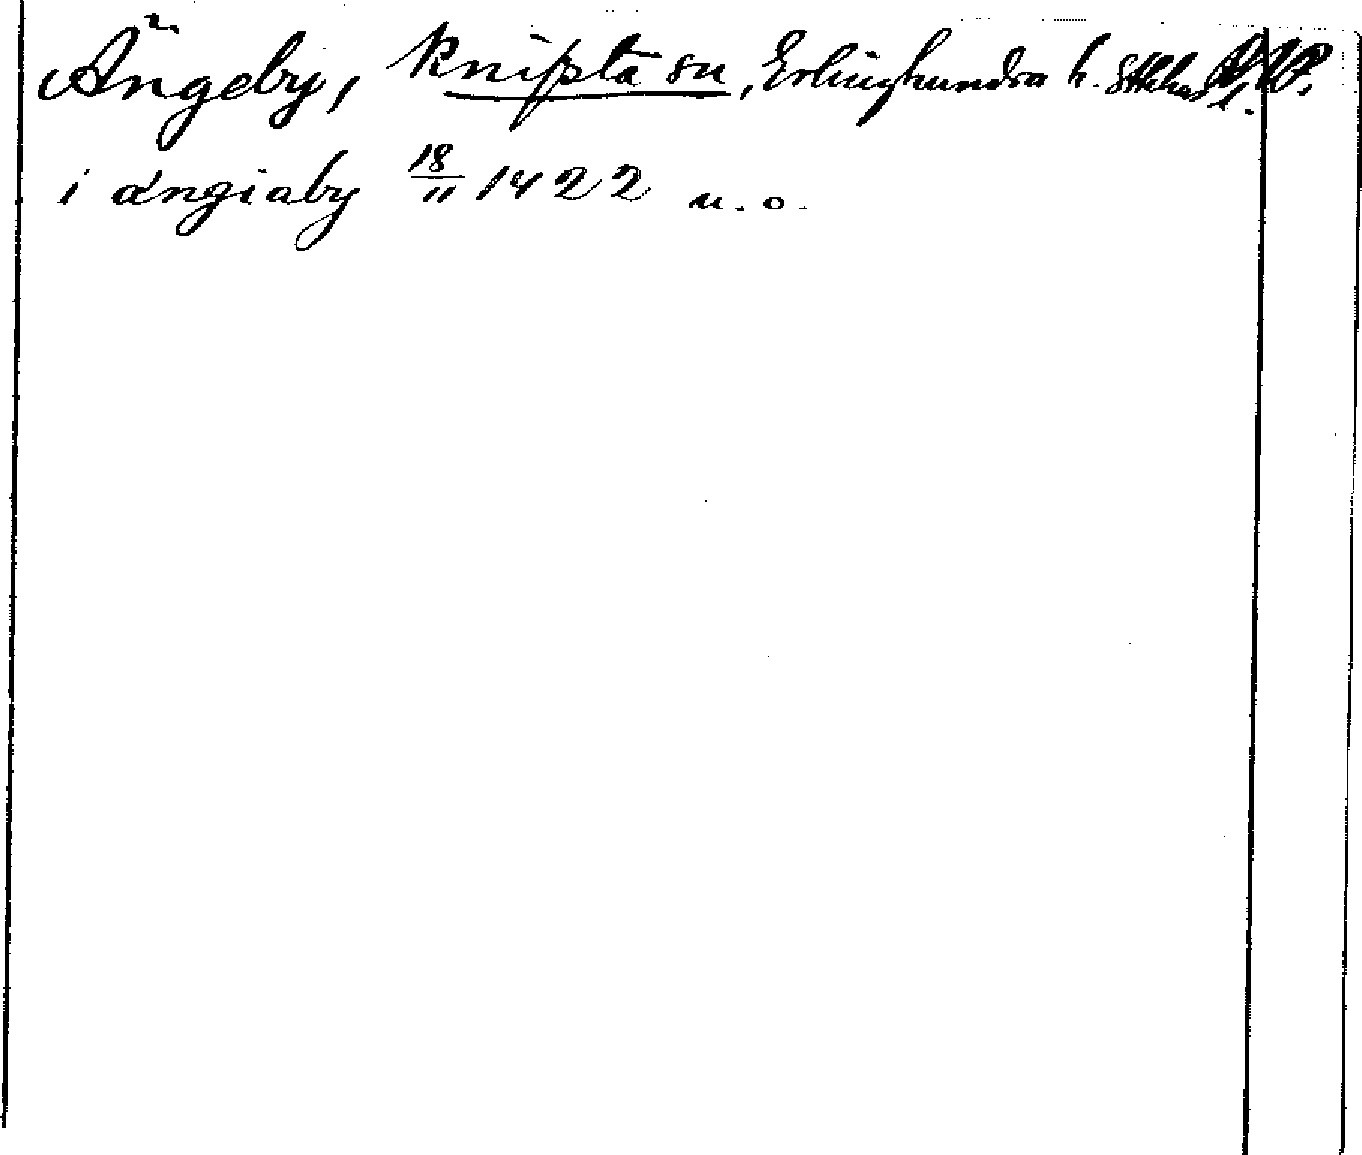 Ängeby, Knifsta sn, Erlinghundra h. Sthlms l.
i ængiaby 18/11 1422 u. o.